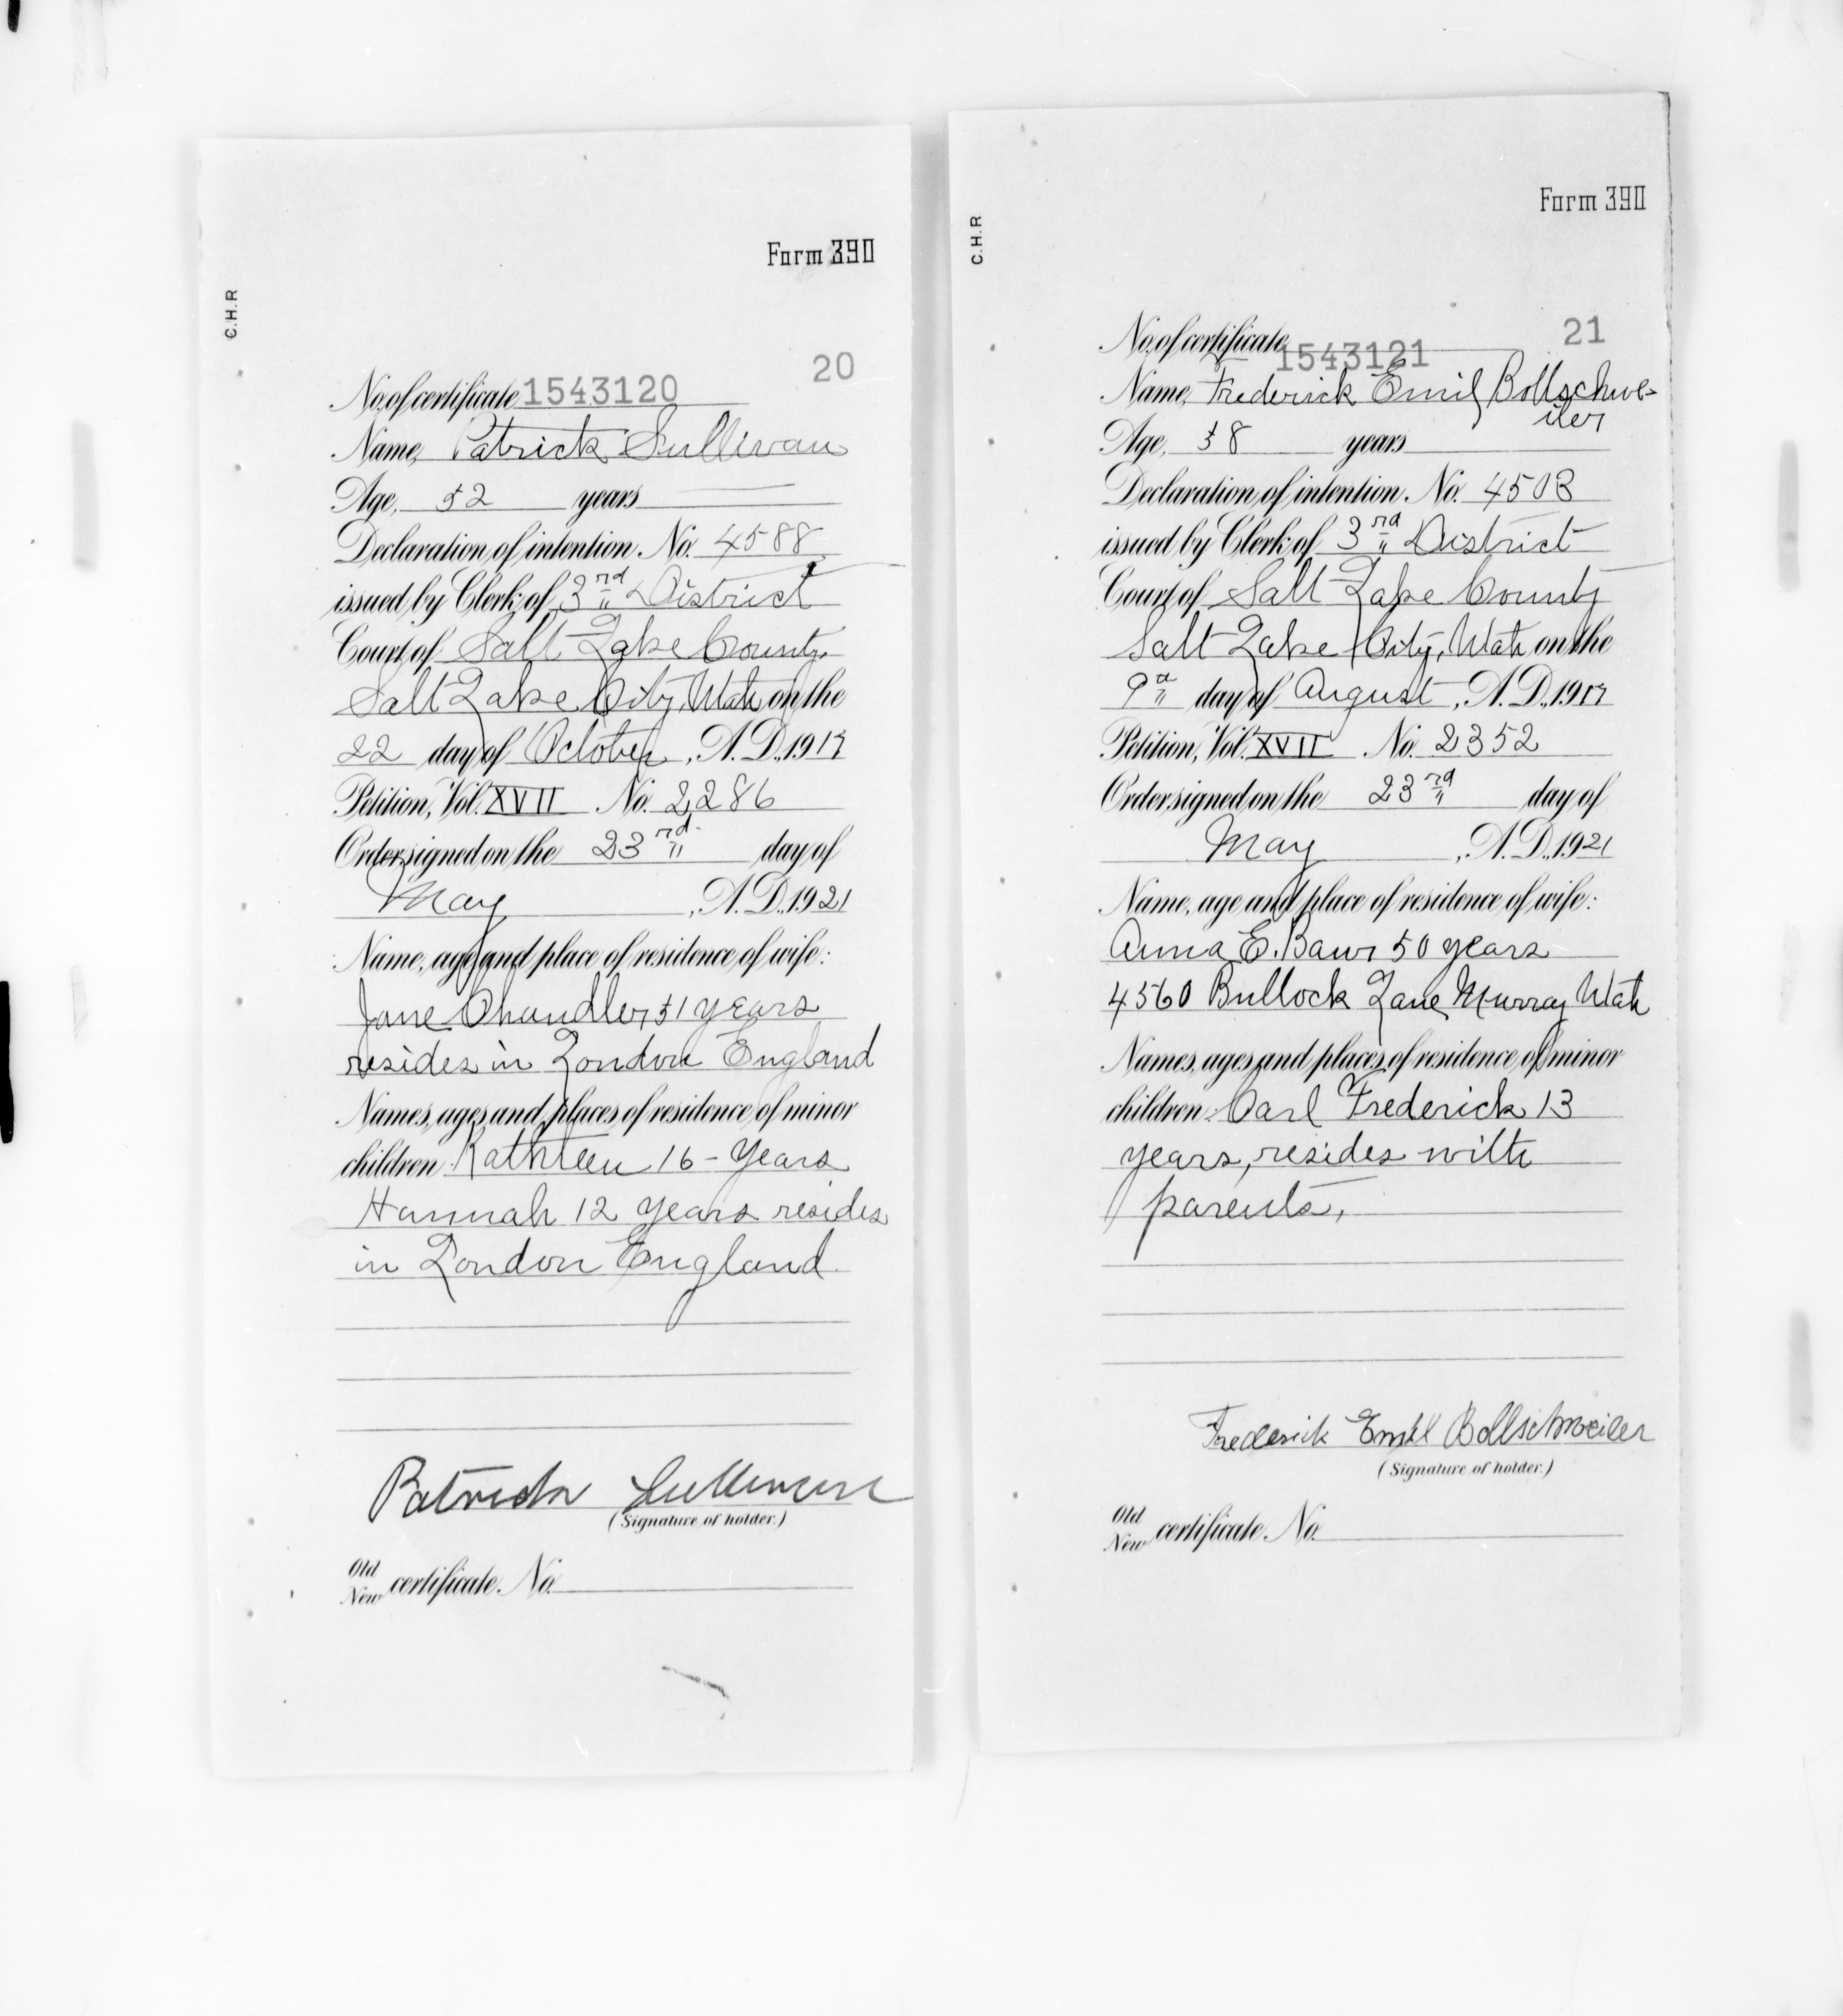 Form 390
C.H.R
20
No. of certificate 1543120
Name, Patrick Sullivan
Age, 52 years
Declaration of intention No. 4588
issued by Clerk of 3rd District
Court of Salt Lake County
Salt Lake City, Utah on the
22 day of October, A.D., 1917
Petition, Vol. XVII No. 2286
Order signed on the 23rd day of
May, A.D., 1921
Name, age and place of residence of wife:
Jane Chandler, 51 years
resides in London England
Names, ages and places of residence of minor
children: Kathleen 16 - Years
Hannah 12 Years resides
in London England
Patrick Sullivan
(Signature of holder.)
Old
New certificate No.
Form 390
C.H.R
21
No. of certificate 1543121
Name, Frederick Emil Bollschwe-
iler
Age, 58 years
Declaration of intention No. 4503
issued by Clerk of 3rd District
Court of Salt Lake County
Salt Lake City, Utah on the
9th day of August, A.D., 1917
Petition, Vol. XVII No. 2352
Order signed on the 23rd day of
May, A.D., 1921
Name, age and place of residence of wife:
Anna E. Baur 50 years
4560 Bullock Lane, Murray Utah
Names, ages and places of residence of minor
children: Carl Frederick 13
years, resides with
parents.
Frederick Emil Bollschweiler
(Signature of holder.)
Old
New certificate No.